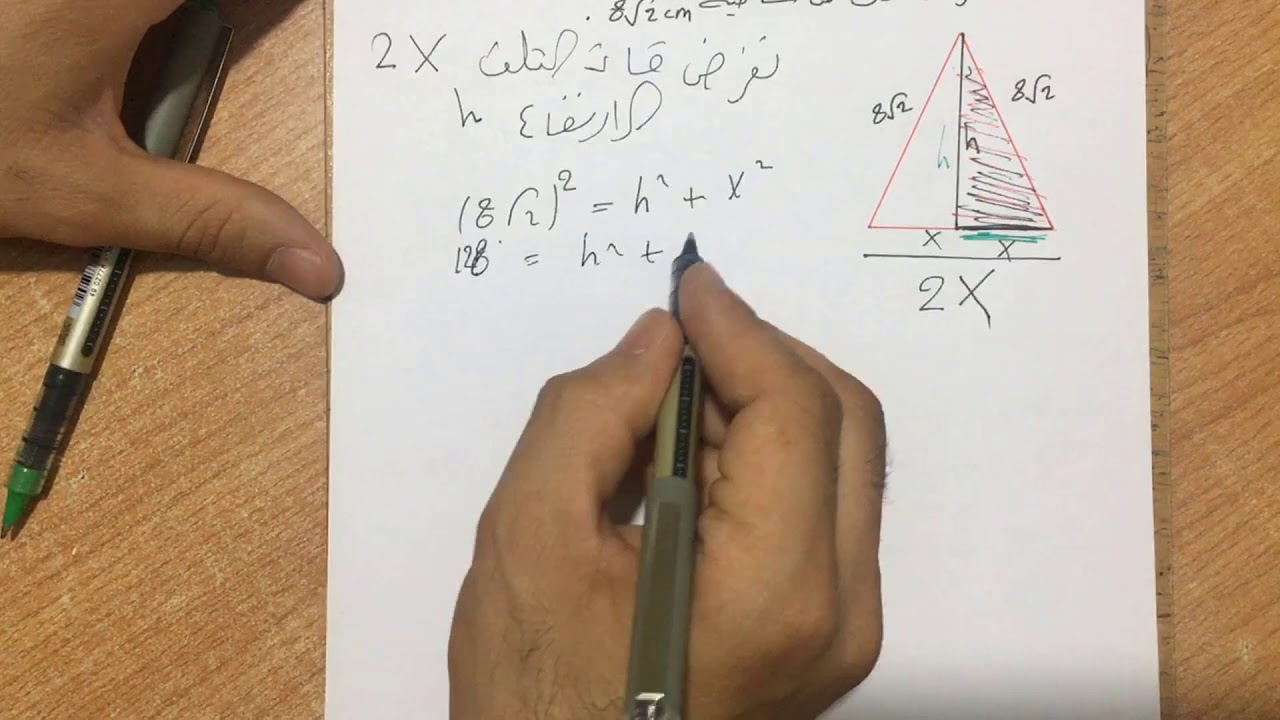 8√2 cm .
نفرض قاعدة المثلث 2X
الارتفاع h
(8√2)² = h² + x²
128 = h² +
8√2
8√2
h
h
x
x
2X